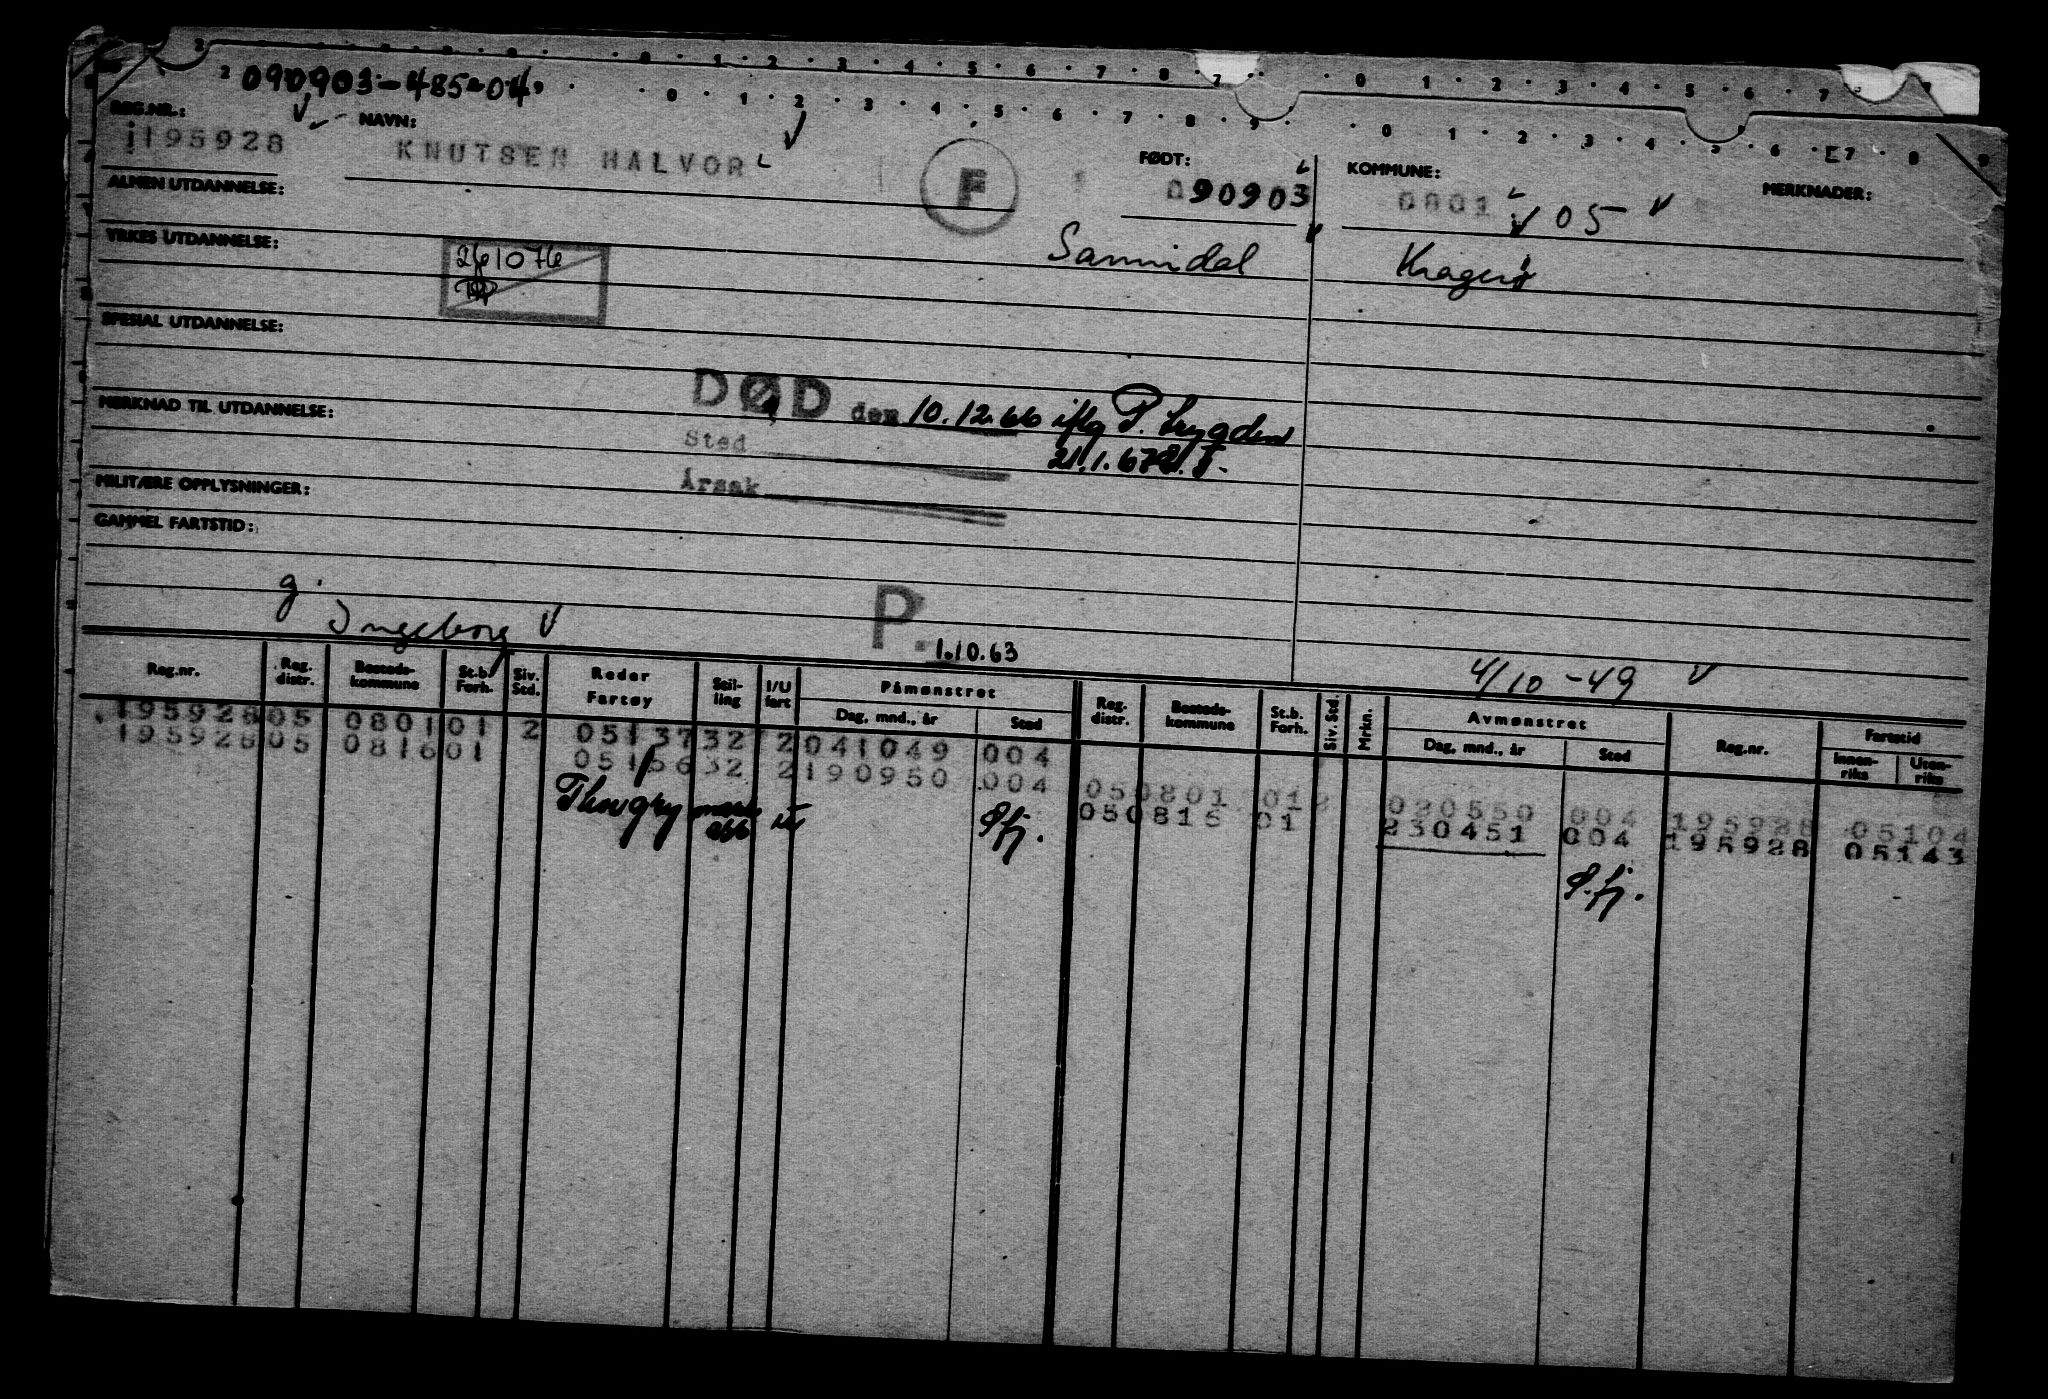 090903-485-04
REG.NR.: NAVN: FØDT: KOMMUNE: MERKNADER:
195928 KNUTSEN HALVOR F 090903 0801 05
ALMEN UTDANNELSE:
Sannidal Kragerø
YRKES UTDANNELSE:
261076
SPESIAL UTDANNELSE:
DØD den 10.12.66 iflg P. Trygden
MERKNAD TIL UTDANNELSE:
Sted 21.1.67
Årsak
MILITÆRE OPPLYSNINGER:
GAMMEL FARTSTID:
g. Ingeborg
P. 1.10.63
4/10-49
Reg.nr. Reg. distr. Bosteds-kommune St.b. Forh. Siv. Std. Reder Fartøy Stil-ling I/U fart Påmønstret Dag, mnd., år Sted Reg. distr. Bosteds-kommune St.b. Forh. Siv. Std. Mrkn. Avmønstret Dag, mnd., år Sted Reg.nr. Fartstid Innen-riks Uten-riks
195928 05 0801 01 2 05137 32 2 041049 004
195928 05 0816 01 05156 32 2 190950 004 05 0801 01 2 020550 004 195928 05104
05 0816 01 230451 004 195928 05143
S.fj.
S.fj.